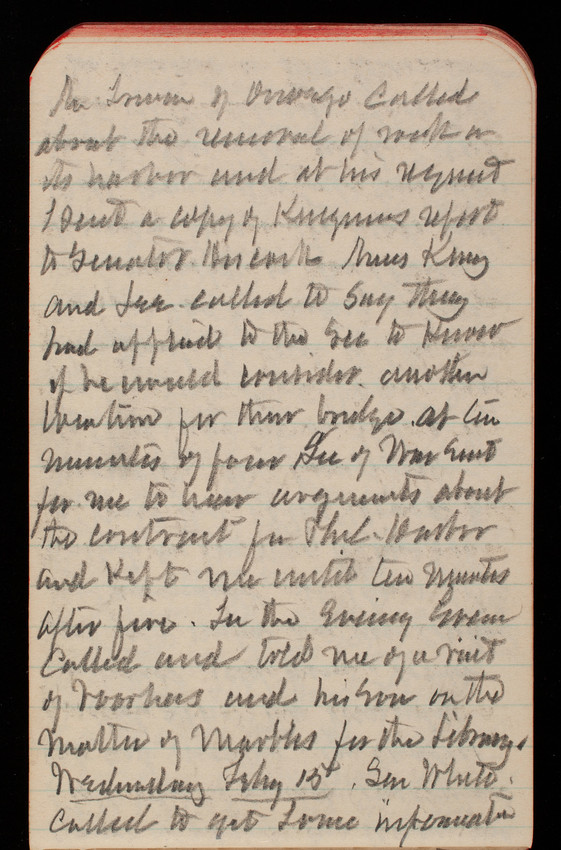 Mr Irwin of Oswego called
about the removal of rock in
its harbor and at his request
I sent a copy of Kingmans report
to Senator Hiscock. Mess King
and Lee called to say they
had applied to the Sec to know
if he would consider another
location for their bridge. at ten
minutes of four Sec of War sent
for me to hear arguments about
the contract for Phil. Harbor
and Kept me until ten minutes
after five. In the Evening Green
called and told me of a visit
of Voorhees and his son on the
matter of Marbles for the Library.
Wednesday Feby 15". Gen White
called to get some information